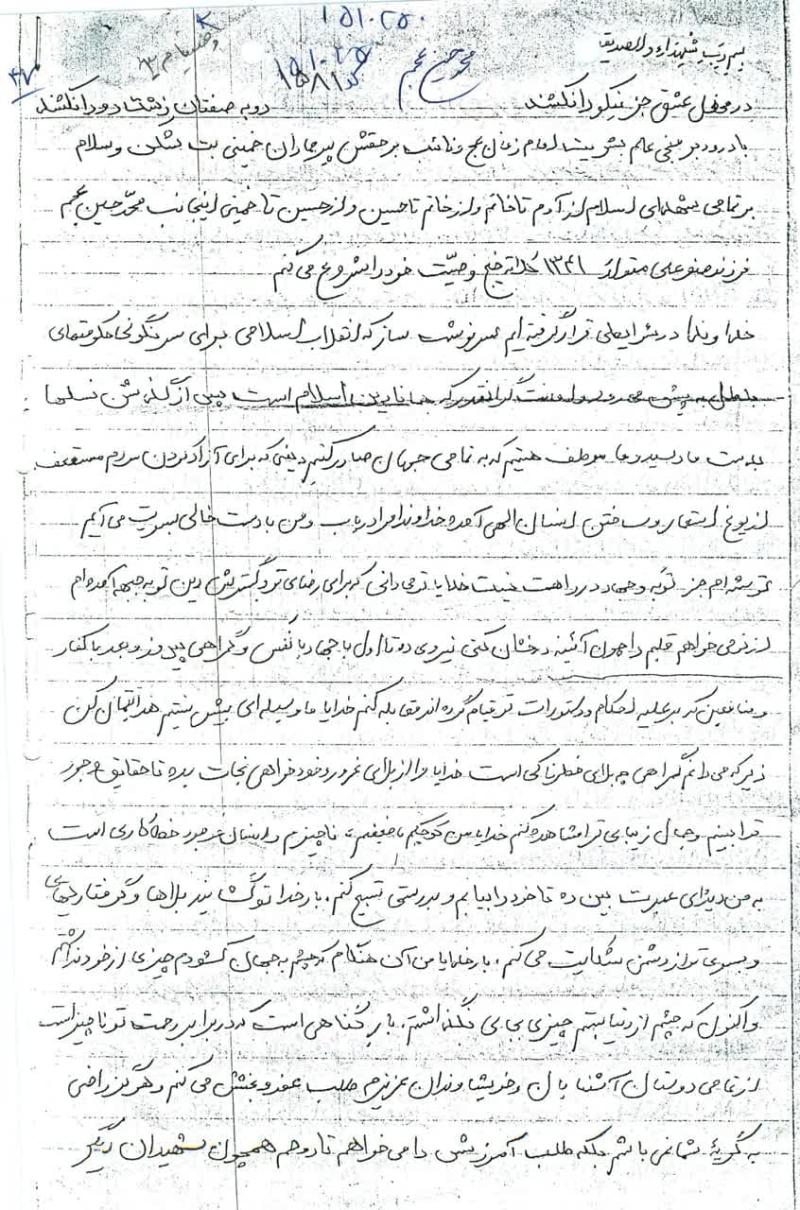 ۱۵۱۰۲۵۰
وصیتنامه
۴۷
محمد حسین عجم
بسم رب الشهداء والصدیقین
در محفل عشق جز نیکو را نکشند روبه صفتان زشت خو را نکشند
با درود بر منجی عالم بشریت امام زمان عج و نائب بر حقش پیر جماران خمینی بت شکن و سلام
بر تمامی شهدای اسلام از آدم تا خاتم و از خاتم تا حسین و از حسین تا خمینی اینجانب محمد حسین عجم
فرزند صنوعلی متولد ۱۳۴۱ کلاته خیج وصیت خود را شروع می کنم
خداوندا در شرایطی قرار گرفته ایم سرنوشت ساز که انقلاب اسلامی برای سرنگونی حکومتهای
باطل به پیش می رود گرانقدر که همانا دین اسلام است پس از گذشتن نسلها
بدست ما رسید و ما موظف هستیم که به تمامی جهان صادر کنیم دینی که برای آزاد کردن مردم مستضعف
از یوغ استعمار و ساختن انسان الهی آمده خداوندا مرا دریاب و من با دست خالی بسویت می آیم
توشه ام جز توبه و جهاد در راهت نیست خدایا تو میدانی که برای رضای تو و گسترش دین تو به جبهه آمده ام
از تو می خواهم قلبم را همچون آئینه درخشان کنی نیروی ده تا اول با جهاد با نفس و گمراهی پیروز و بعد با کفار
و منافقین که بر علیه احکام و دستورات تو قیام کرده اند مقابله کنم خدایا ما وسیله ای بیش نیستیم هدایتمان کن
زیرا که می دانم گمراهی چه بلای خطرناکی است خدایا ما را از بلای غرور و خود خواهی نجات بده تا حقایق وجود
ترا ببینم و جمال زیبای ترا مشاهده کنم خدایا من کوچکم ضعیفم، ناچیزم و انسان خطاکاری است
به من دیدهای عبرت بین ده تا خود را بیابم و بدرستی تسبیح کنم. بار خدا تو گشاینده بلاها و گرفتاریهای
و بسوی تو از دشمن شکایت می کنم، بار خدایا من آن هنگام که چشم به جهان گشودم چیزی از خود نداشتم
و اکنون که چشم از دنیا بستم چیزی بجای نگذاشتم، بار گناهی است که در برابر رحمت تو ناچیز است
از تمامی دوستان آشنایان و خویشاوندان عزیزم طلب عفو و بخشش می کنم و هرگز راضی
به گریه شما نمی باشم بلکه طلب آمرزش را می خواهم تا روحم همچون شهیدان دیگر